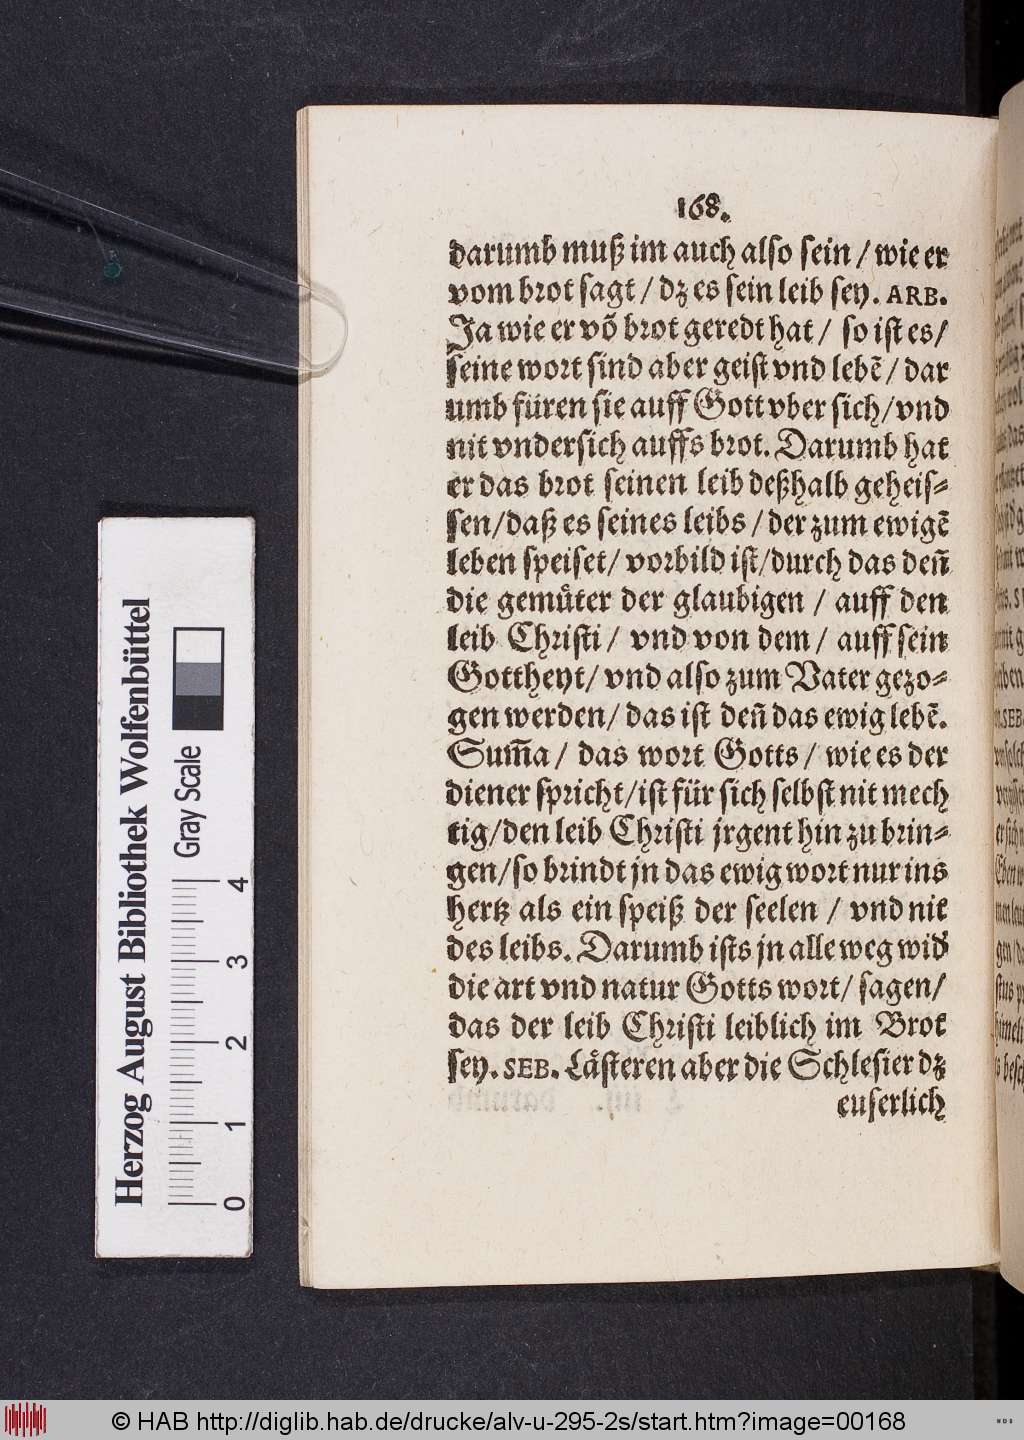 168.
darumb muß im auch also sein / wie er
vom brot sagt / dz es sein leib sey. ARB.
Ja wie er võ brot geredt hat / so ist es/
seine wort sind aber geist vnd lebẽ / dar
umb füren sie auff Gott vber sich/vnd
nit vndersich auffs brot. Darumb hat
er das brot seinen leib deßhalb geheis⸗
sen/daß es seines leibs / der zum ewigẽ
leben speiset/ vorbild ist/durch das deñ
die gemuͤter der glaubigen / auff den
leib Christi / vnd von dem / auff sein
Gottheyt/ vnd also zum Vater gezo⸗
gen werden/ das ist deñ das ewig lebẽ.
Sum̃a / das wort Gotts / wie es der
diener spricht/ist für sich selbst nit mech
tig/den leib Christi jrgent hin zu brin⸗
gen/so brindt jn das ewig wort nur ins
hertz als ein speiß der seelen / vnd nit
des leibs. Darumb ists jn alle weg wid'
die art vnd natur Gotts wort/ sagen/
das der leib Christi leiblich im Brot
sey. SEB. Laͤsteren aber die Schlesier dz
euserlich
Herzog August Bibliothek Wolfenbüttel
Gray Scale
0 1 2 3 4
© HAB http://diglib.hab.de/drucke/alv-u-295-2s/start.htm?image=00168